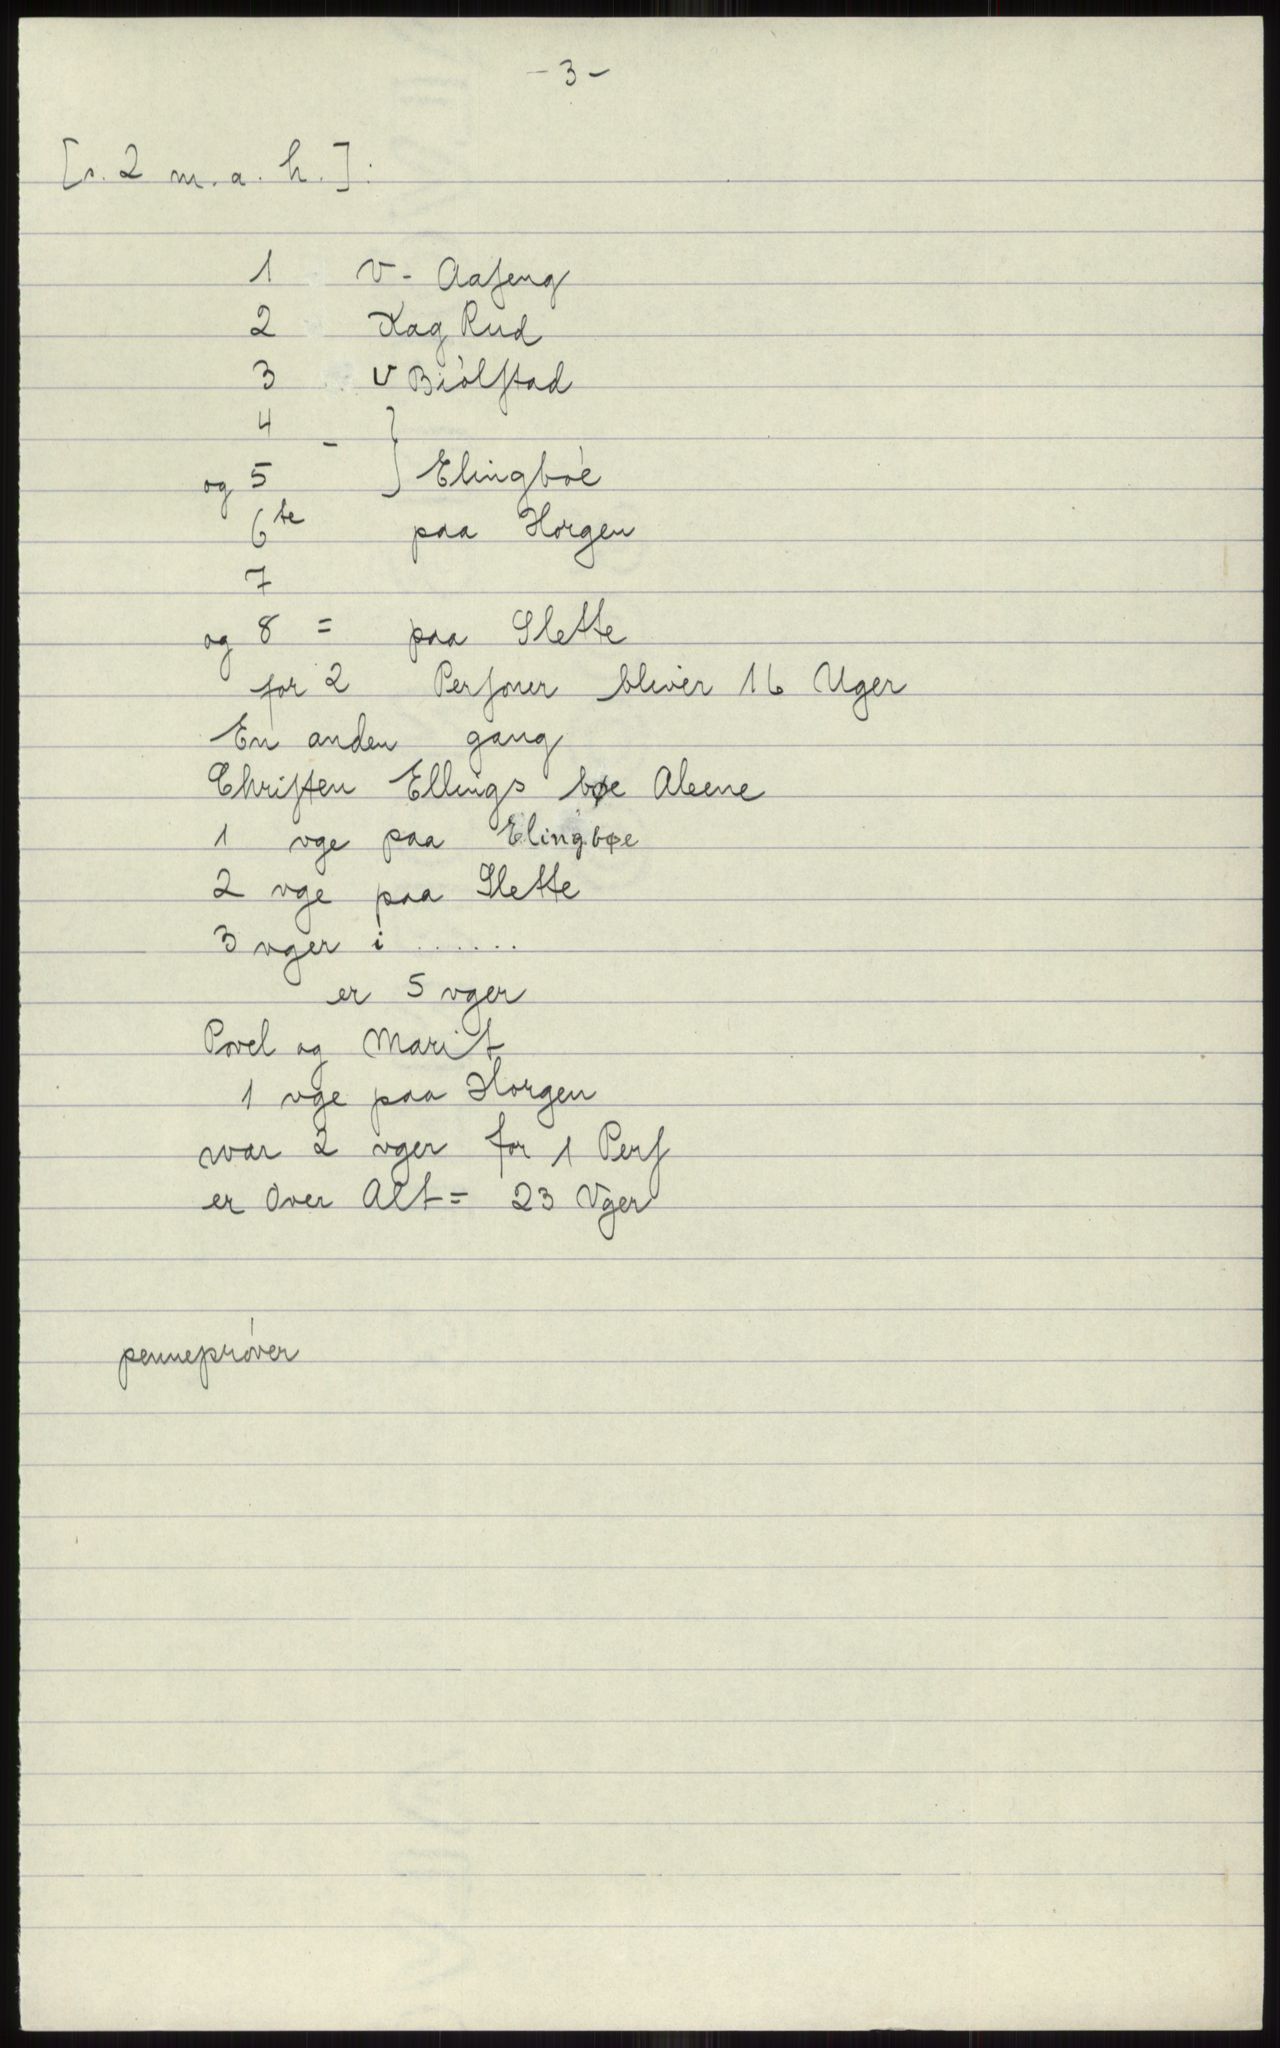 - 3 -
[s. 2 m. a. h.]:
1 V - Aaſeng
2 Kag Rud
3 V Biólſtad
4 -
og 5 } Elingbóe
6te paa Horgen
7
og 8 = paa Slette
for 2 Perſoner bliver 16 Uger
En anden gang
Chriſten Ellings bøe Aleene
1 vge paa Elingbøe
2 vge paa Slette
3 vger i ......
er 5 vger
Povel og Marit
1 vge paa Horgen
war 2 vger for 1 Perſ
er Over Alt = 23 Vger
pennepróver